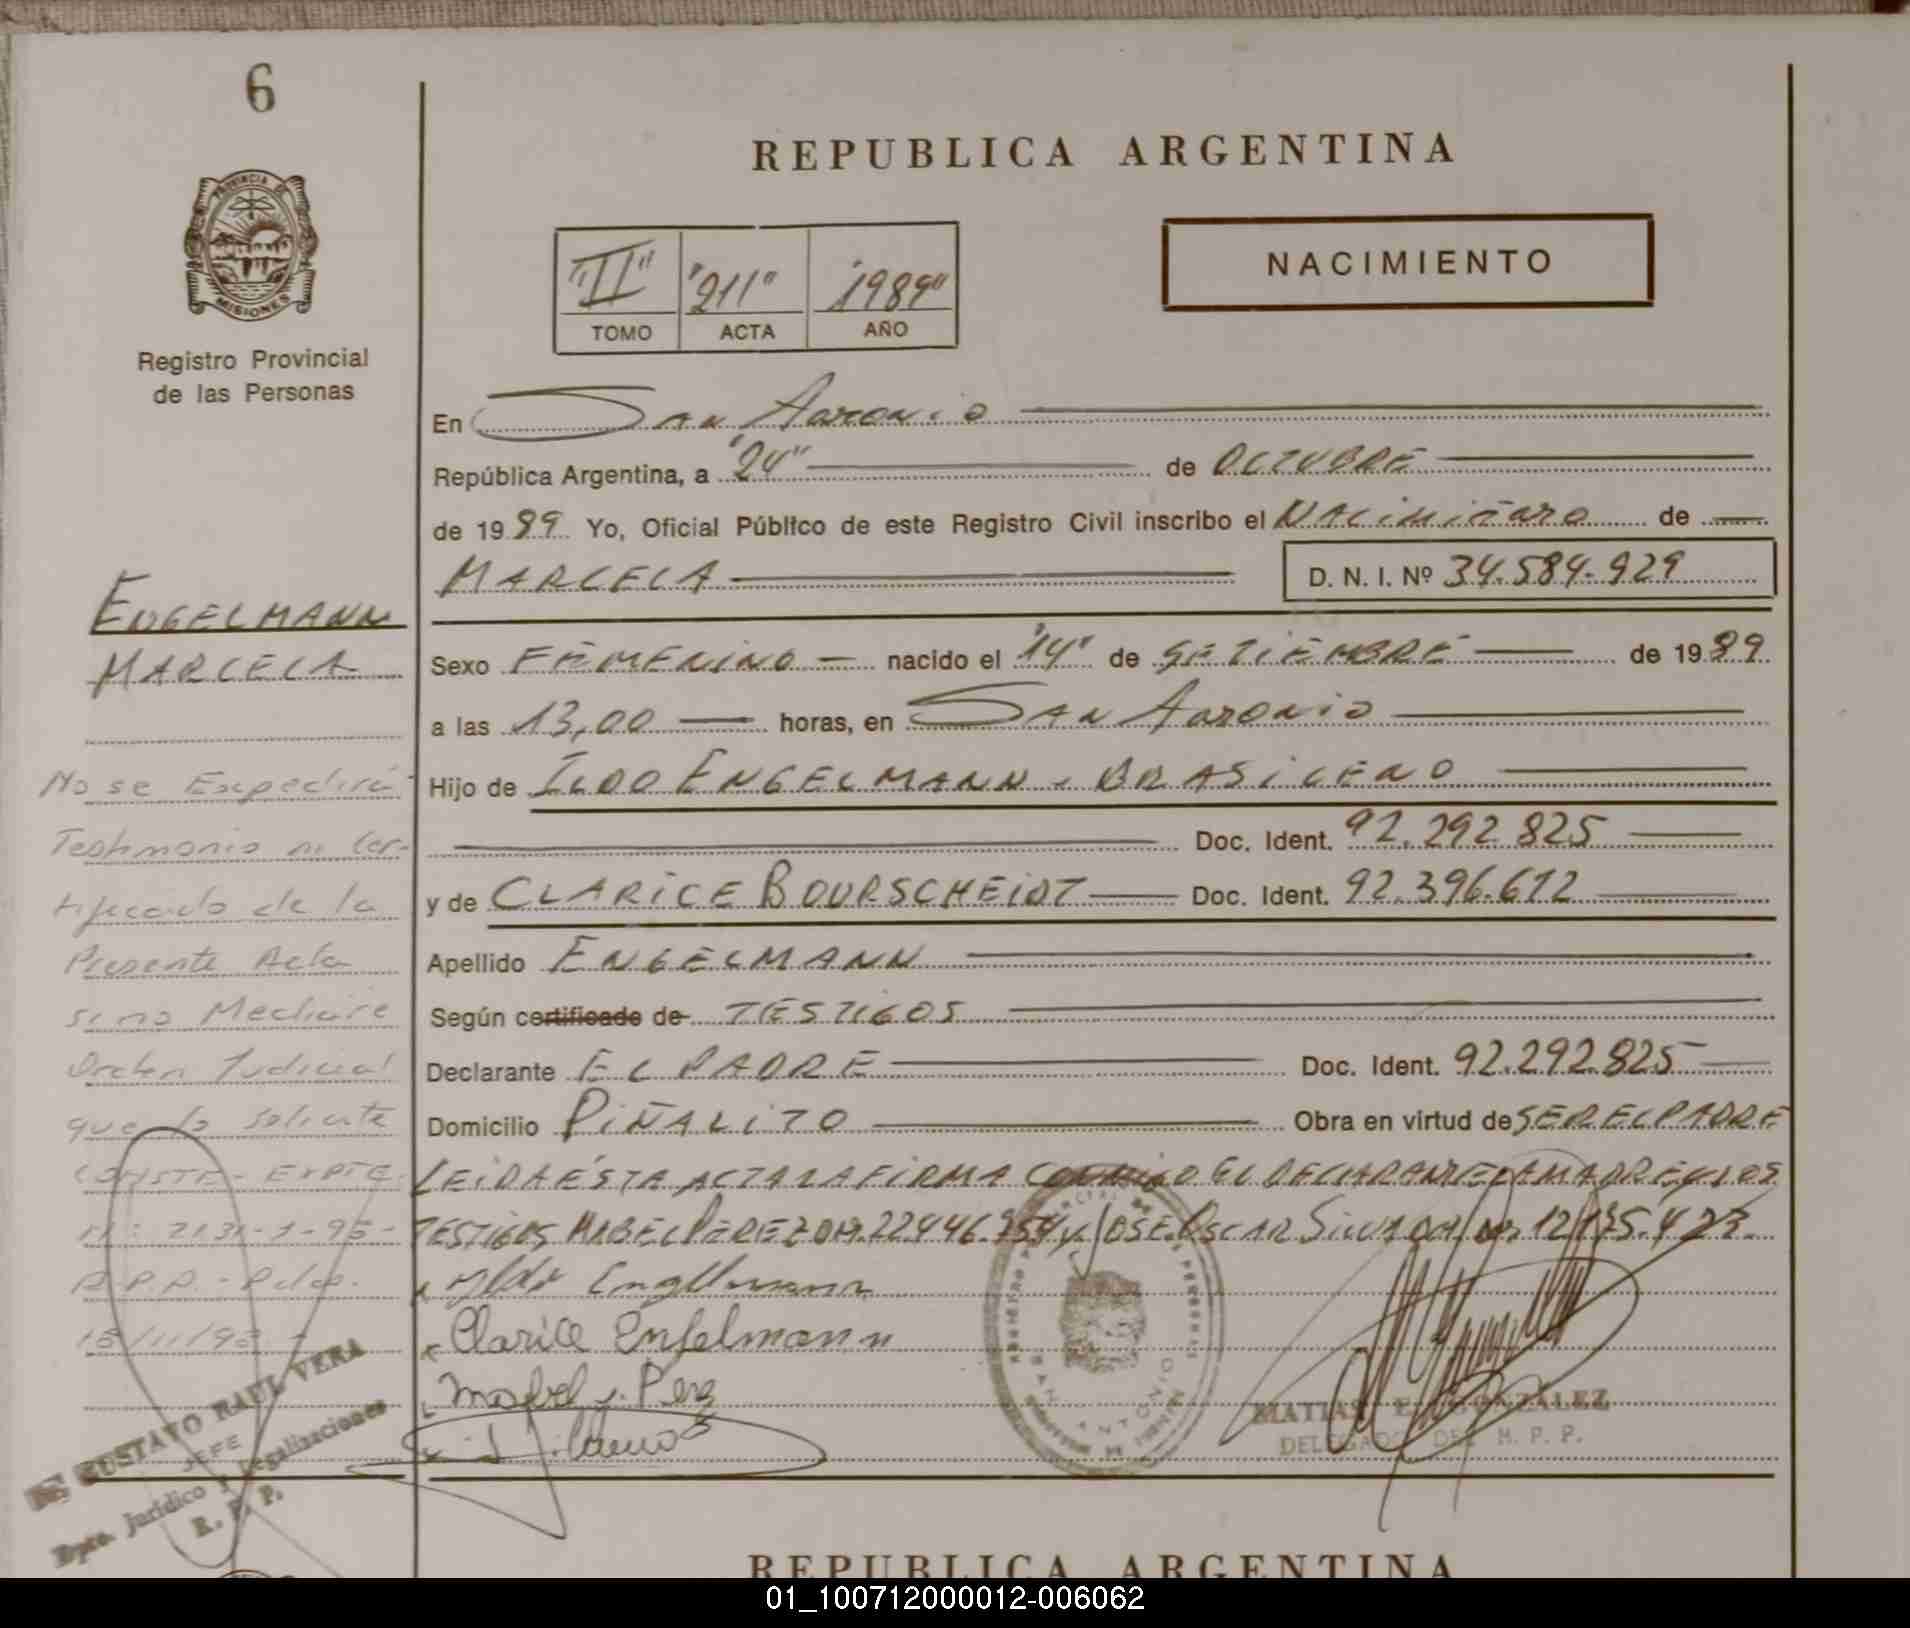 6
REPUBLICA ARGENTINA
PROVINCIA DE
MISIONES
Registro Provincial
de las Personas
"II" "211" "1989"
TOMO ACTA AÑO
NACIMIENTO
En San Antonio
República Argentina, a "24" de OCTUBRE
de 1989 Yo, Oficial Público de este Registro Civil inscribo el Nacimiento de
MARCELA D. N. I. Nº 34.584.929
ENGELMANN
MARCELA
Sexo FEMENINO nacido el "14" de SETIEMBRE de 1989
a las 13,00 horas, en San Antonio
Hijo de ILDO ENGELMANN - BRASILENO
Doc. Ident. 92.292.825
y de CLARICE BOURSCHEIDT Doc. Ident. 92.396.612
Apellido ENGELMANN
Según certificado de TESTIGOS
Declarante EL PADRE Doc. Ident. 92.292.825
Domicilio PIÑALITO Obra en virtud de SER EL PADRE
LEIDA ÉSTA ACTA LA FIRMA CONMIGO EL DECLARANTE LA MADRE Y LOS
TESTIGOS MABEL PEREZ DNI. 22.446.954 y JOSE OSCAR SILVA DNI No. 12.175.423.
Ildo Engelmann
Clarice Engelmann
Mabel Perez
No se Expedirá
Testimonio ni Cer-
tificado de la
Presente Acta
si no Mediare
Orden Judicial
que lo solicite
CONSTE - EXPTE.
Nº: 2131-J-95-
R.P.P. - Pdas.
GUSTAVO RAUL VERA
JEFE
Dpto. Jurídico y Legalizaciones
R. P. P.
SAN ANTONIO
MISIONES
MATIAS E. GONZALEZ
DELEGADO DEL R. P. P.
REPUBLICA ARGENTINA
01_100712000012-006062